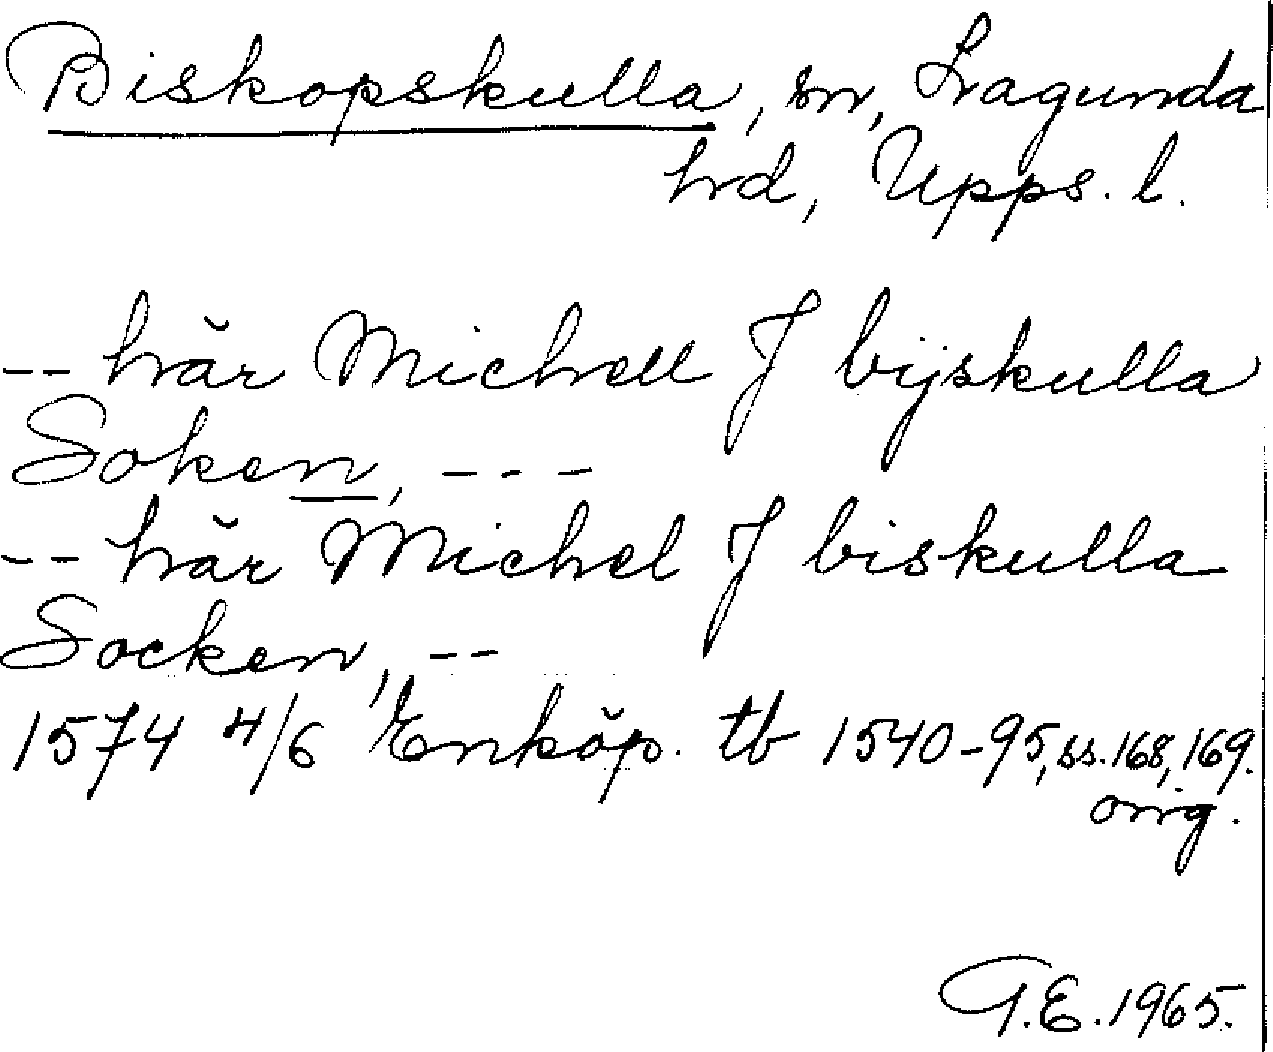 Biskopskulla, sn, Lagunda
hd, Upps. l.
-- här Michell J bijskulla
Soken, ---
-- här Michel J biskulla
Socken, --
1574 4/6 Enköp. tb 1540-95, ss. 168, 169.
orig.
G.E. 1965.